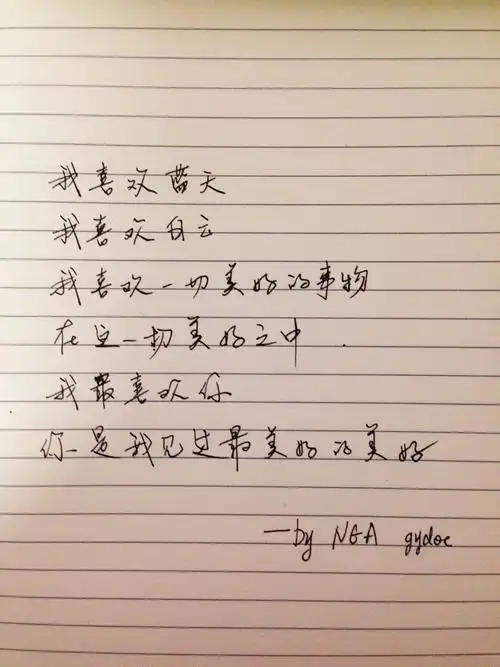 我喜欢蓝天
我喜欢白云
我喜欢一切美好的事物
在这一切美好之中.
我最喜欢你
你是我见过最美好的美好
—by NGA gydoc